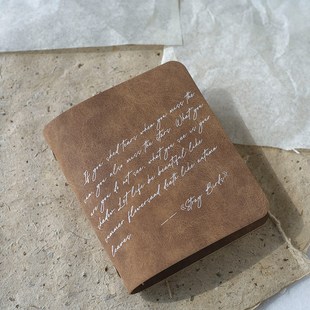 If you shed tears when you miss the
sun you also miss the stars What you
are you do not see, what you see is your
shadow Let life be beautiful like
summer flowers and death like autumn
leaves
— 《Stray Birds》